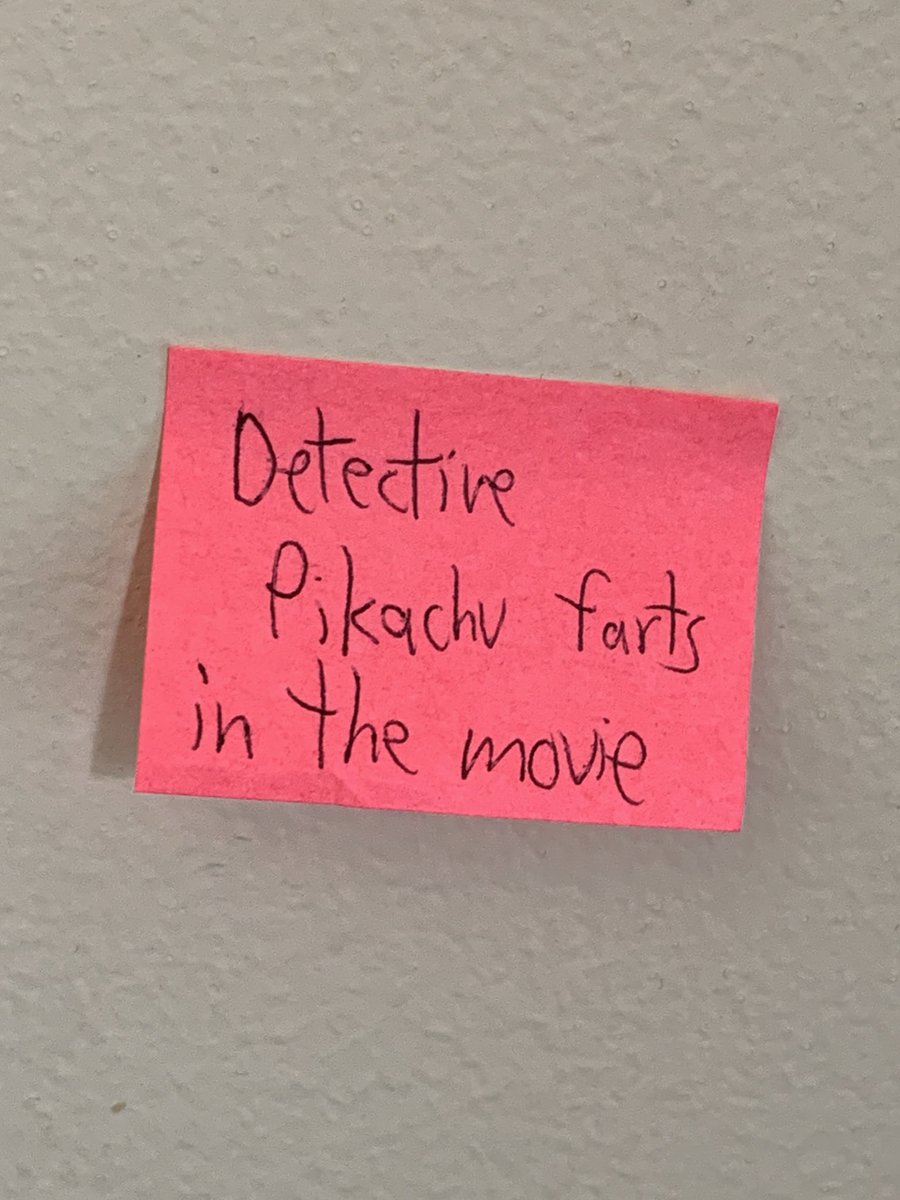 Detective
Pikachu farts
in the movie